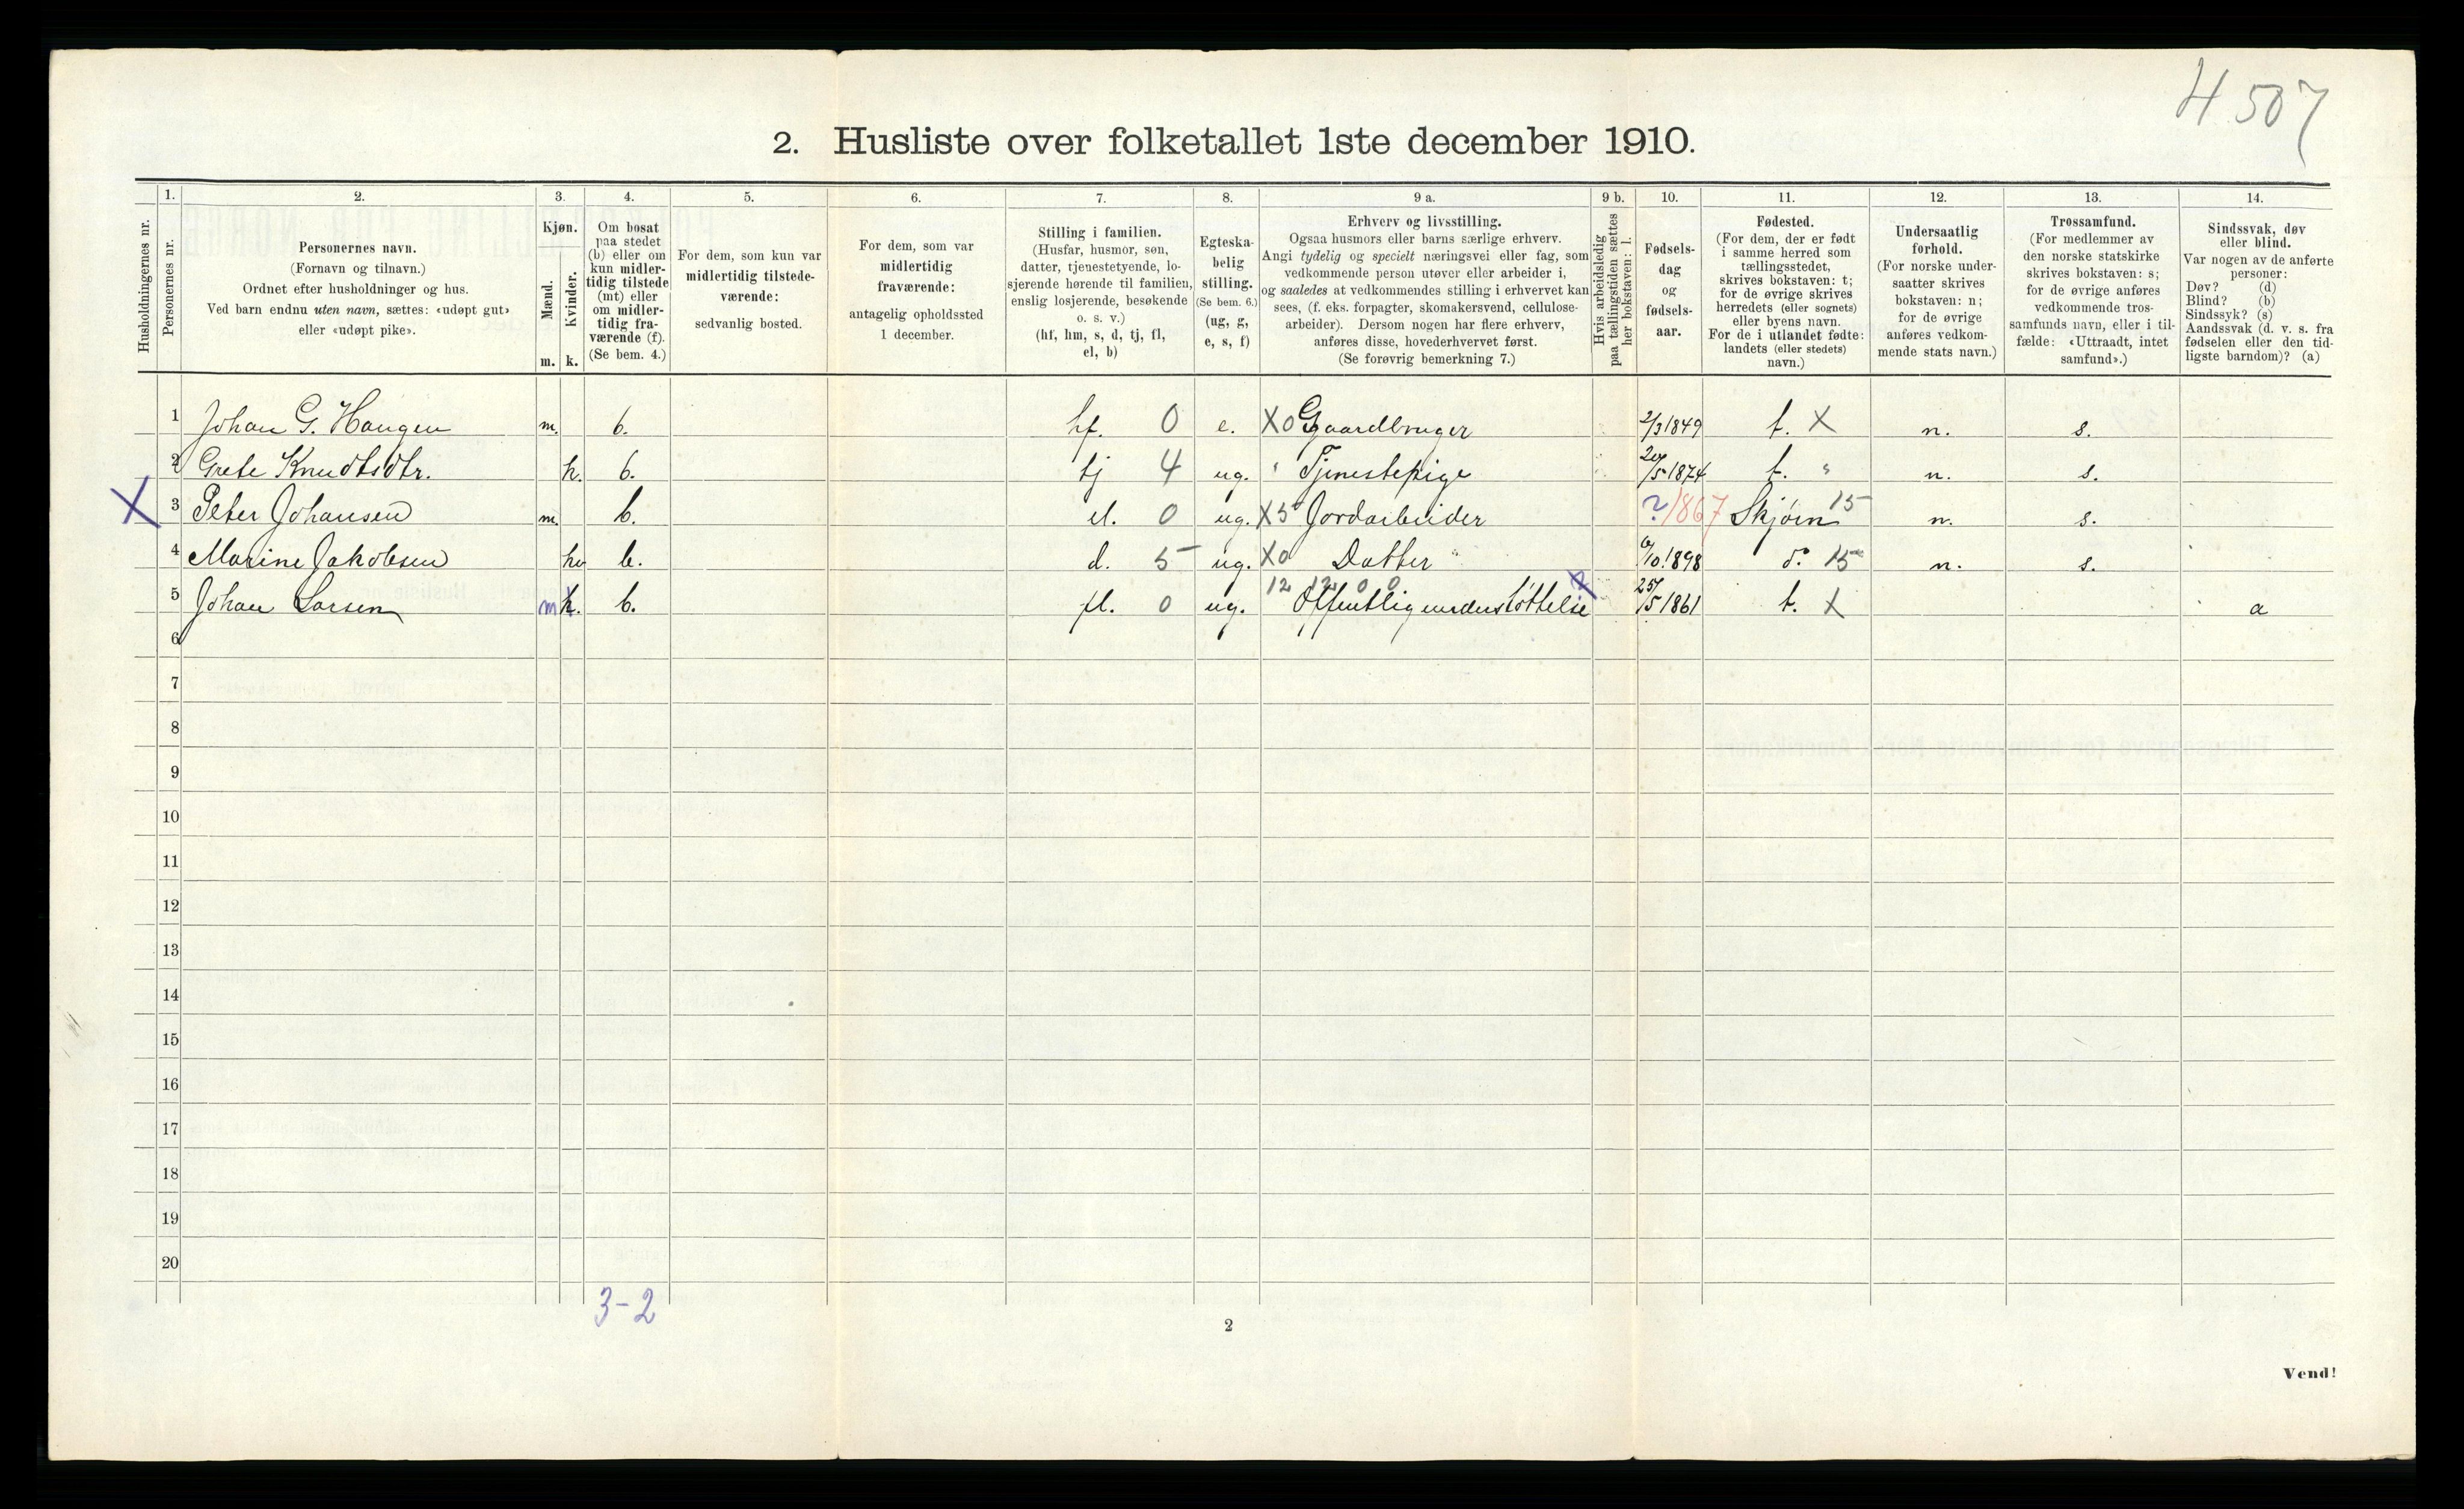 4 507
2. Husliste over folketallet 1ste december 1910.
Husholdningernes nr.
1.
Personernes nr.
2.
Personernes navn.
(Fornavn og tilnavn.)
Ordnet efter husholdninger og hus.
Ved barn endnu uten navn, sættes: «udøpt gut»
eller «udøpt pike».
3.
Kjøn.
Mænd.
Kvinder.
m. k.
4.
Om bosat
paa stedet
(b) eller om
kun midler-
tidig tilstede
(mt) eller
om midler-
tidig fra-
værende (f).
(Se bem. 4.)
5.
For dem, som kun var
midlertidig tilstede-
værende:
sedvanlig bosted.
6.
For dem, som var
midlertidig
fraværende:
antagelig opholdssted
1 december.
7.
Stilling i familien.
(Husfar, husmor, søn,
datter, tjenestetyende, lo-
sjerende hørende til familien,
enslig losjerende, besøkende
o. s. v.)
(hf, hm, s, d, tj, fl,
el, b)
8.
Egteska-
belig
stilling.
(Se bem. 6.)
(ug, g,
e, s, f)
9 a.
Erhverv og livsstilling.
Ogsaa husmors eller barns særlige erhverv.
Angi tydelig og specielt næringsvei eller fag, som
vedkommende person utøver eller arbeider i,
og saaledes at vedkommendes stilling i erhvervet kan
sees, (f. eks. forpagter, skomakersvend, cellulose-
arbeider). Dersom nogen har flere erhverv,
anføres disse, hovederhvervet først.
(Se forøvrig bemerkning 7.)
9 b.
Hvis arbeidsledig
paa tællingstiden sættes
her bokstaven: l.
10.
Fødsels-
dag
og
fødsels-
aar.
11.
Fødested.
(For dem, der er født
i samme herred som
tællingsstedet,
skrives bokstaven: t;
for de øvrige skrives
herredets (eller sognets)
eller byens navn.
For de i utlandet fødte:
landets (eller stedets)
navn.)
12.
Undersaatlig
forhold.
(For norske under-
saatter skrives
bokstaven: n;
for de øvrige
anføres vedkom-
mende stats navn.)
13.
Trossamfund.
(For medlemmer av
den norske statskirke
skrives bokstaven: s;
for de øvrige anføres
vedkommende tros-
samfunds navn, eller i til-
fælde: «Uttraadt, intet
samfund».)
14.
Sindssvak, døv
eller blind.
Var nogen av de anførte
personer:
Døv? (d)
Blind? (b)
Sindssyk? (s)
Aandssvak (d. v. s. fra
fødselen eller den tid-
ligste barndom)? (a)
1 Johan G. Haugen m. b. hf. 0 e. X0 Gaardbruger 2/3 1849 t. X n. s.
2 Grete Knudtsdtr. k. b. tj 4 ug. " Tjenestepige 20/5 1874 t. " n. s.
X 3 Peter Johansen m. b. el. 0 ug. X5 Jordarbeider ? 1867 Skjørn 15 n. s.
4 Marine Jakobsen kv b. d. 5 ug. X0 Datter " 6/10 1898 do 15 n. s.
5 Johan Larsen m k. b. fl. 0 ug. 12 12 0 0 Offentlig understøttelse 25/5 1861 t. X a
6
7
8
9
10
11
12
13
14
15
16
17
18
19
20
3-2
2
Vend!